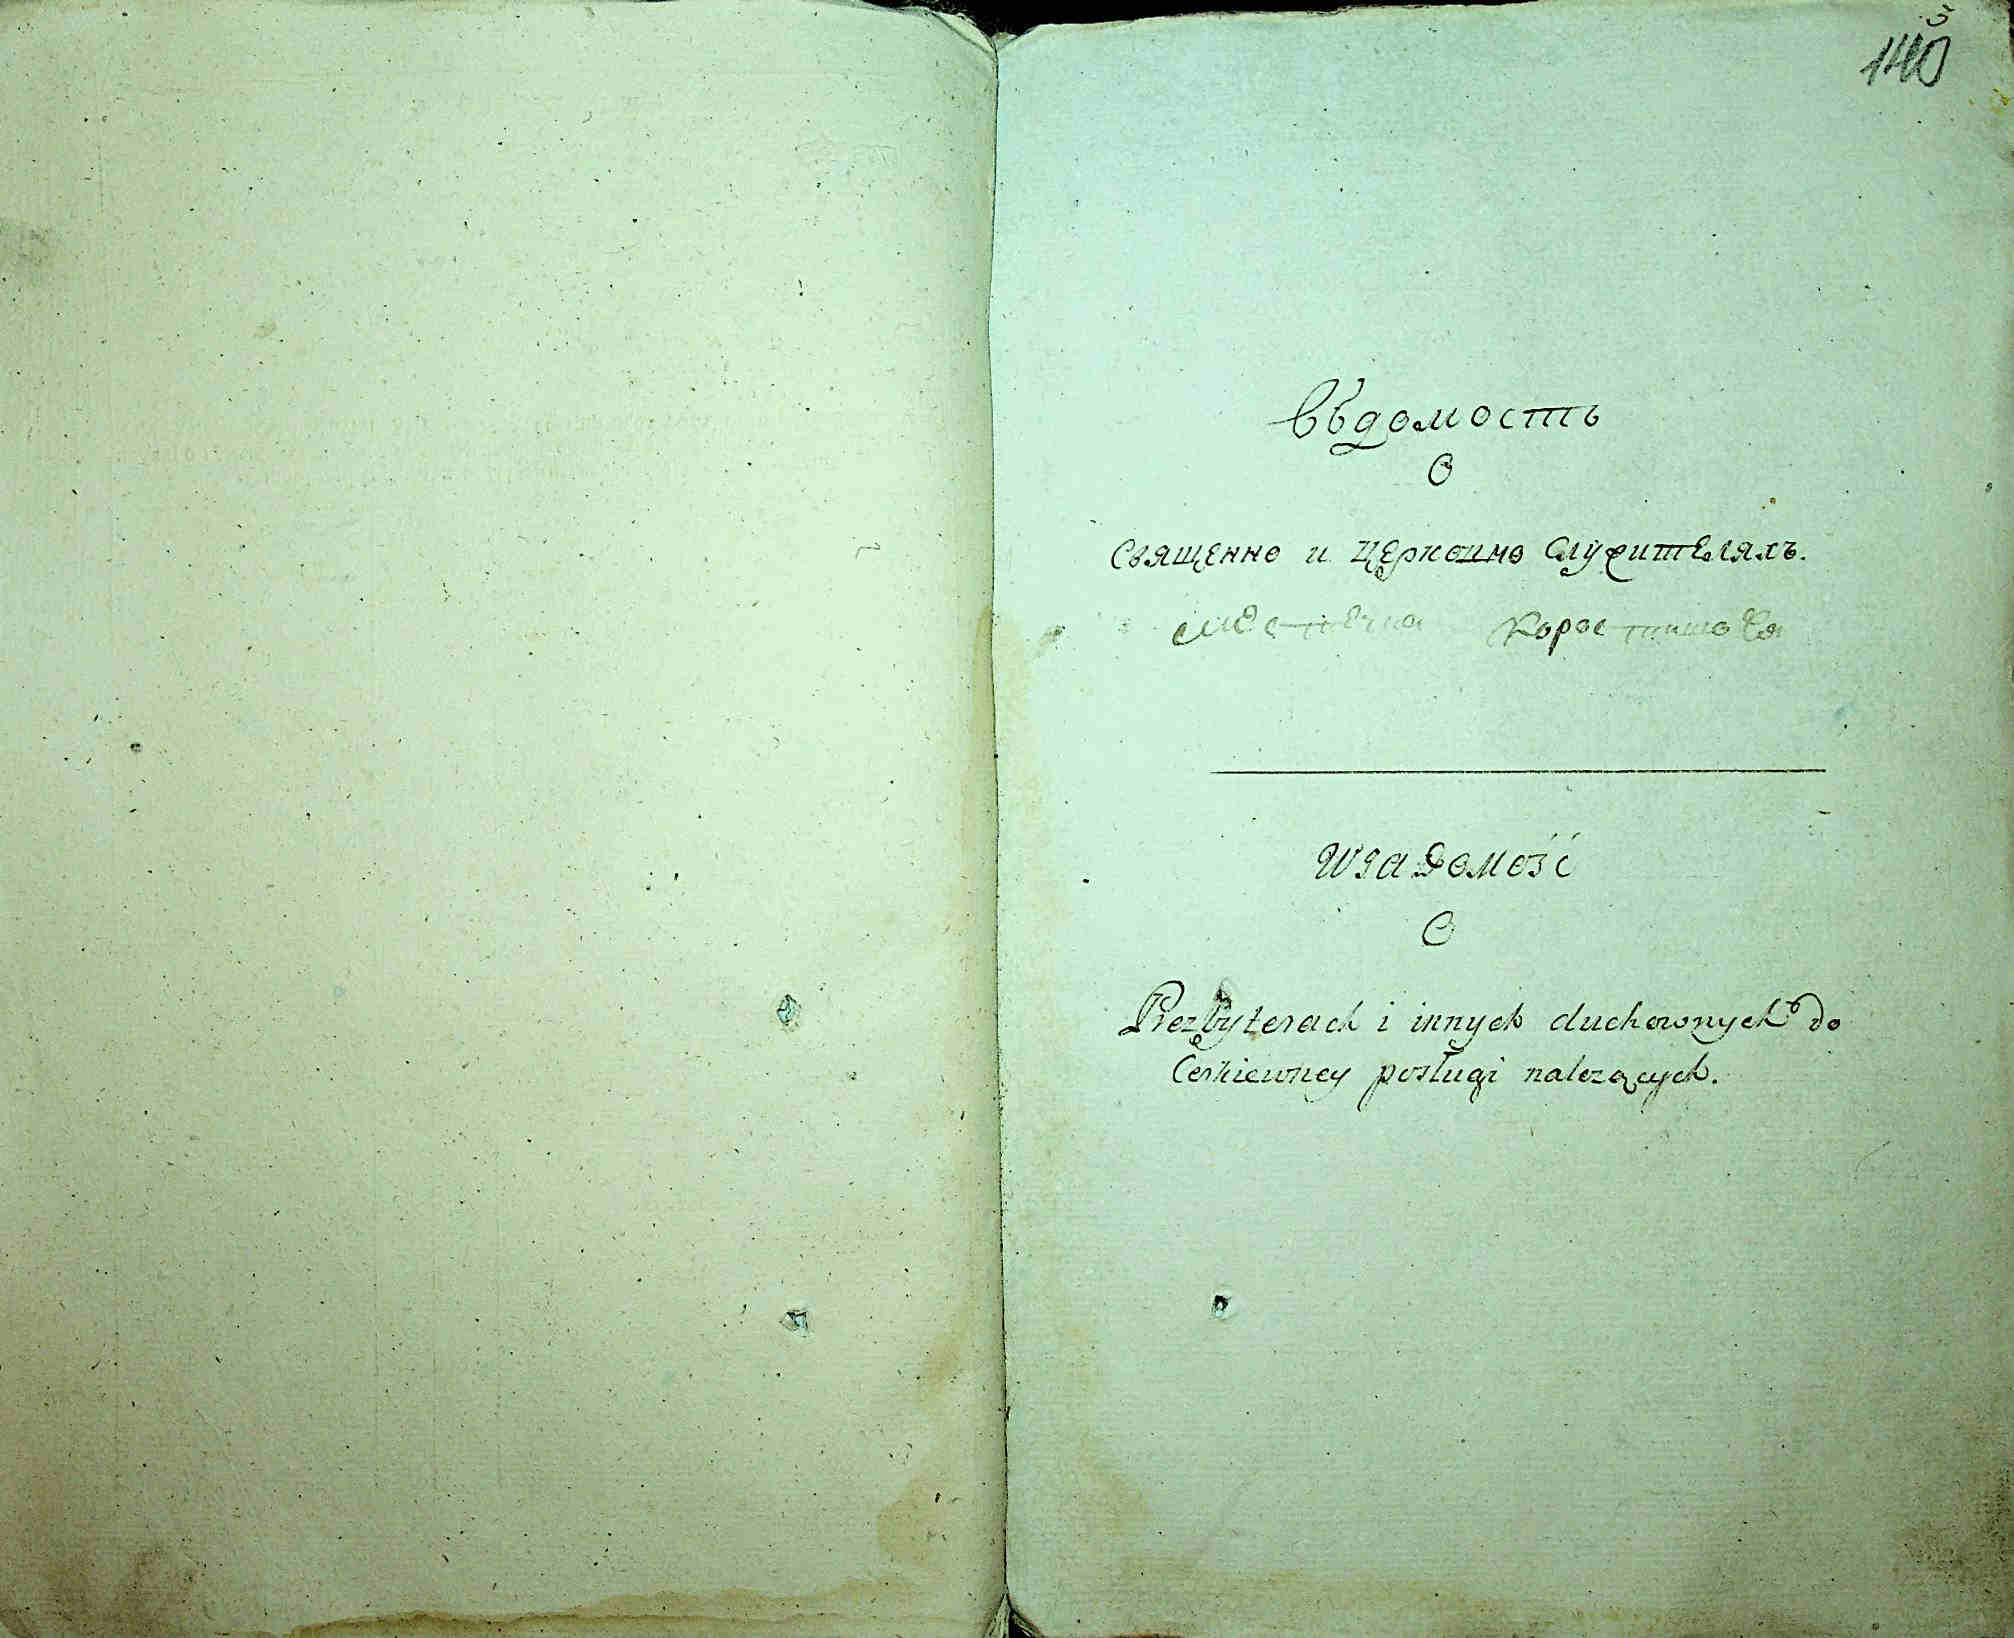 5
140
Вѣдомость
О
Священно и Церковно Служителяхъ.
местечка Коростишова
Wiadomość
O
Prezbyterach i innych duchownych do
Cerkiewney posługi należących.